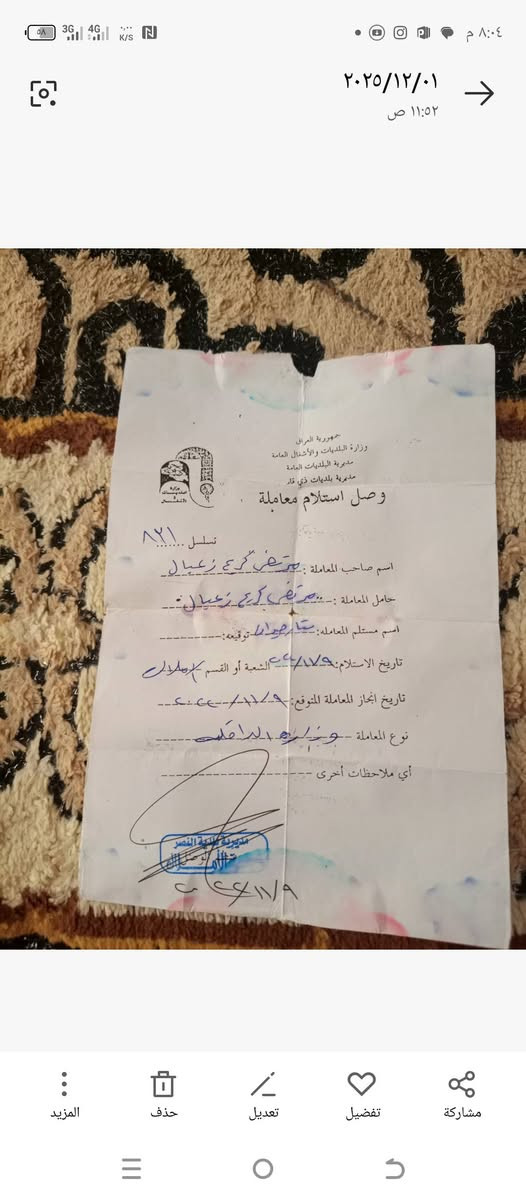 ٨:٠٤ م
3G 4G K/S
٥٨
٢٠٢٥/١٢/٠١
١١:٥٢ ص
جمهورية العراق
وزارة البلديات والأشغال العامة
مديرية البلديات العامة
مديرية بلديات ذي قار
وصل استلام معاملة
تسلسل ٨٢١
اسم صاحب المعاملة: مرتضى كريم زغبال
حامل المعاملة: مرتضى كريم زغبال
اسم مستلم المعاملة: ستار توقيعه:
تاريخ الاستلام: ٢٠٢٢/١١/٩ الشعبة أو القسم الاملاك
تاريخ انجاز المعاملة المتوقع: ٢٠٢٢/١١/٩
نوع المعاملة وزارة الداخلية
أي ملاحظات أخرى
مديرية بلدية النصر
٢٠٢٢/١١/٩
مشاركة
تفضيل
تعديل
حذف
المزيد